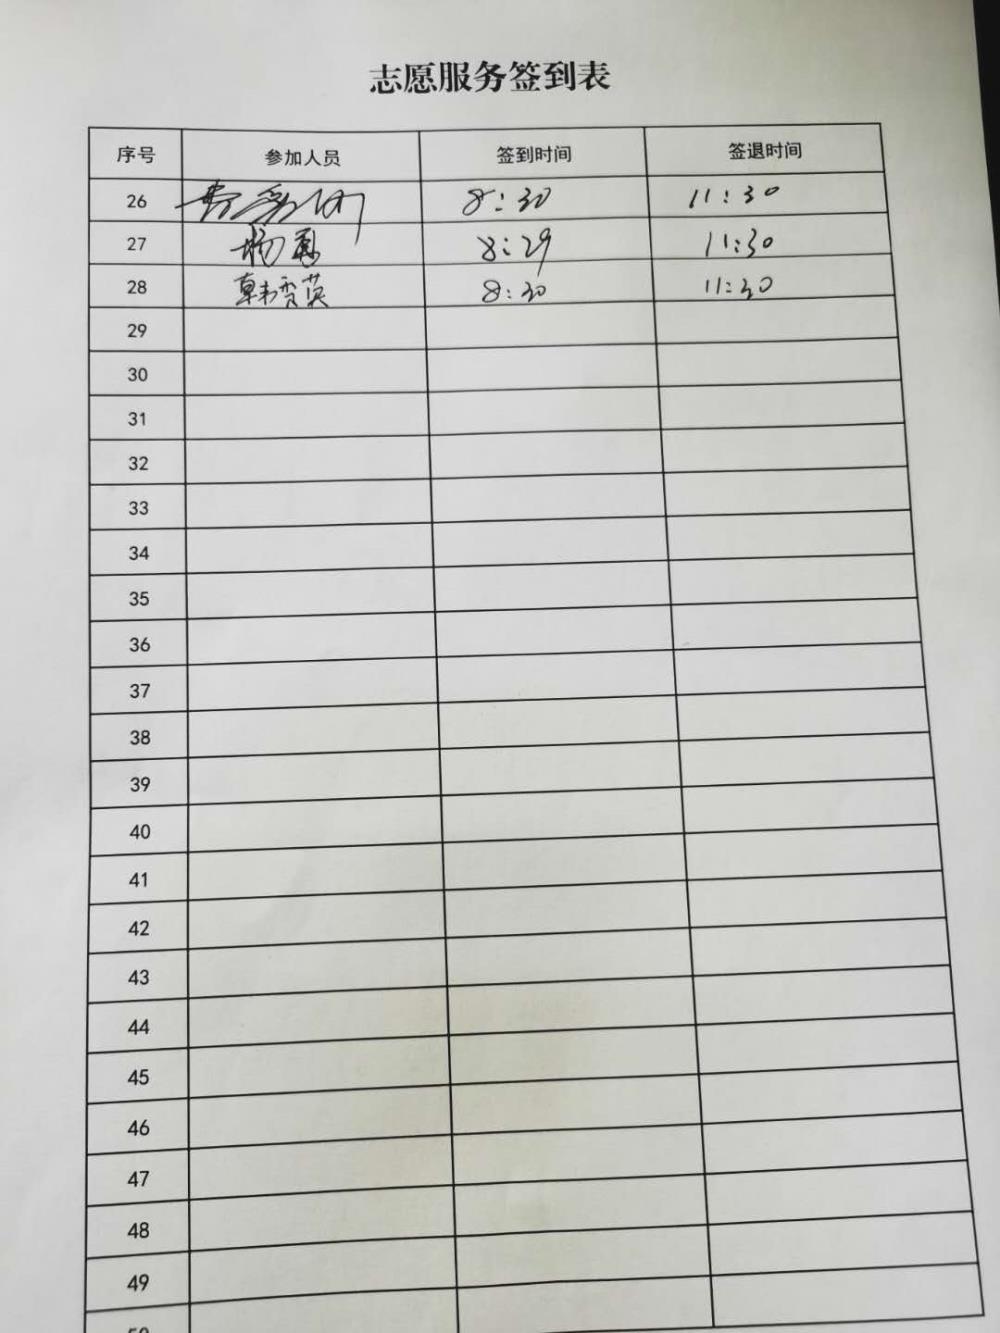 志愿服务签到表
序号 参加人员 签到时间 签退时间
26 8:30 11:30
27 杨 8:29 11:30
28 韩 英 8:30 11:30
29
30
31
32
33
34
35
36
37
38
39
40
41
42
43
44
45
46
47
48
49
50